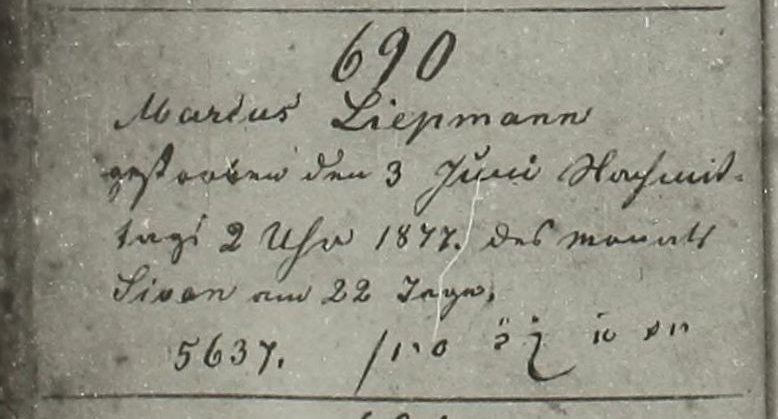 690
Marcus Liepmann
gestorben den 3 Juni Nachmit-
tags 2 Uhr 1877. des monats
Sivan am 22 Tage,
5637. סיון